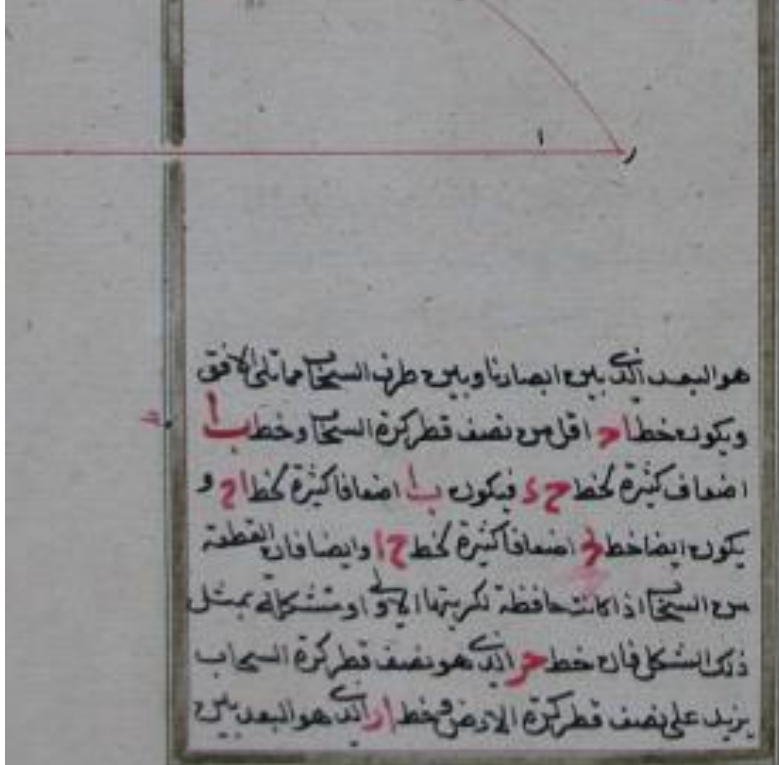 ا
ر
هو البعد الذى بين ابصارنا وبين طرف السحاب مما تلى الافق
ويكون خط اح اقل من نصف قطر كرة السحاب وخط ب ا
اضعاف كثيرة لخط ح ء فيكون ب ا اضعافا كثيرة لخط اح و
يكون ايضا خط اضعافا كثيرة لخط ح ا وايضا فان القطعة
من السحاب اذا كانت حافظة لكريتها الاولى او متشكلة بمثل
ذلك الشكل فان خط حر الذى هو نصف قطر كرة السحاب
يزيد على نصف قطر كرة الارض وخط ار الذى هو البعد بين